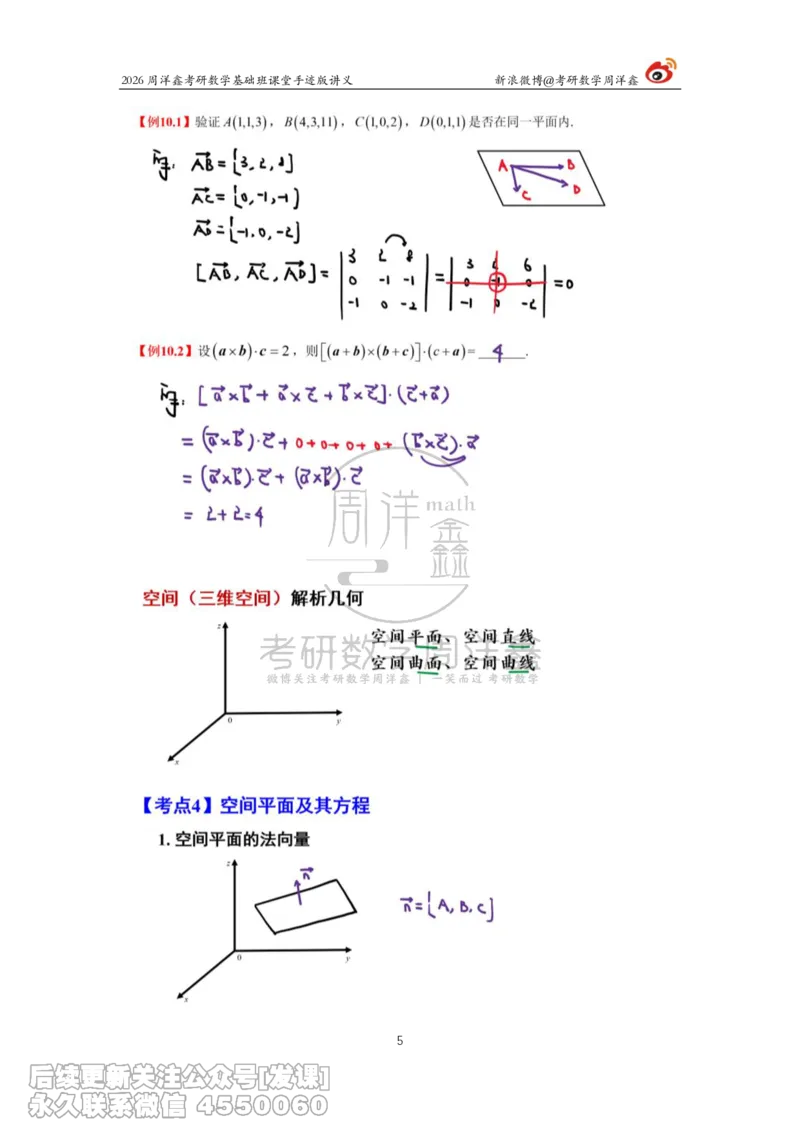 2026 周洋鑫考研数学基础班课堂手迹版讲义 新浪微博@考研数学周洋鑫
【例10.1】验证 A(1,1,3)，B(4,3,11)，C(1,0,2)，D(0,1,1) 是否在同一平面内.
解: AB→ = {3, 2, 8}
AC→ = {0, -1, -1}
AD→ = {-1, 0, -2}
A B C D
[AB→, AC→, AD→] = | 3 2 8 | = | 3 2 6 | = 0
| 0 -1 -1 | | 0 -1 0 |
| -1 0 -2 | | -1 0 -2 |
【例10.2】设 (a×b)·c = 2，则 [(a+b)×(b+c)]·(c+a) = 4 .
解: [a→×b→ + a→×c→ + b→×c→]·(c→+a→)
= (a→×b→)·c→ + 0+0+0+0+ (b→×c→)·a→
= (a→×b→)·c→ + (a→×b→)·c→
= 2+2=4
周洋鑫 math
空间（三维空间）解析几何
空间平面、空间直线
空间曲面、空间曲线
考研数学周洋鑫
微博关注考研数学周洋鑫 | 一笑而过 考研数学
z
0 y
x
【考点4】空间平面及其方程
1. 空间平面的法向量
z n→
n→ = {A, B, C}
0 y
x
5
后续更新关注公众号[发课]
永久联系微信 4550060